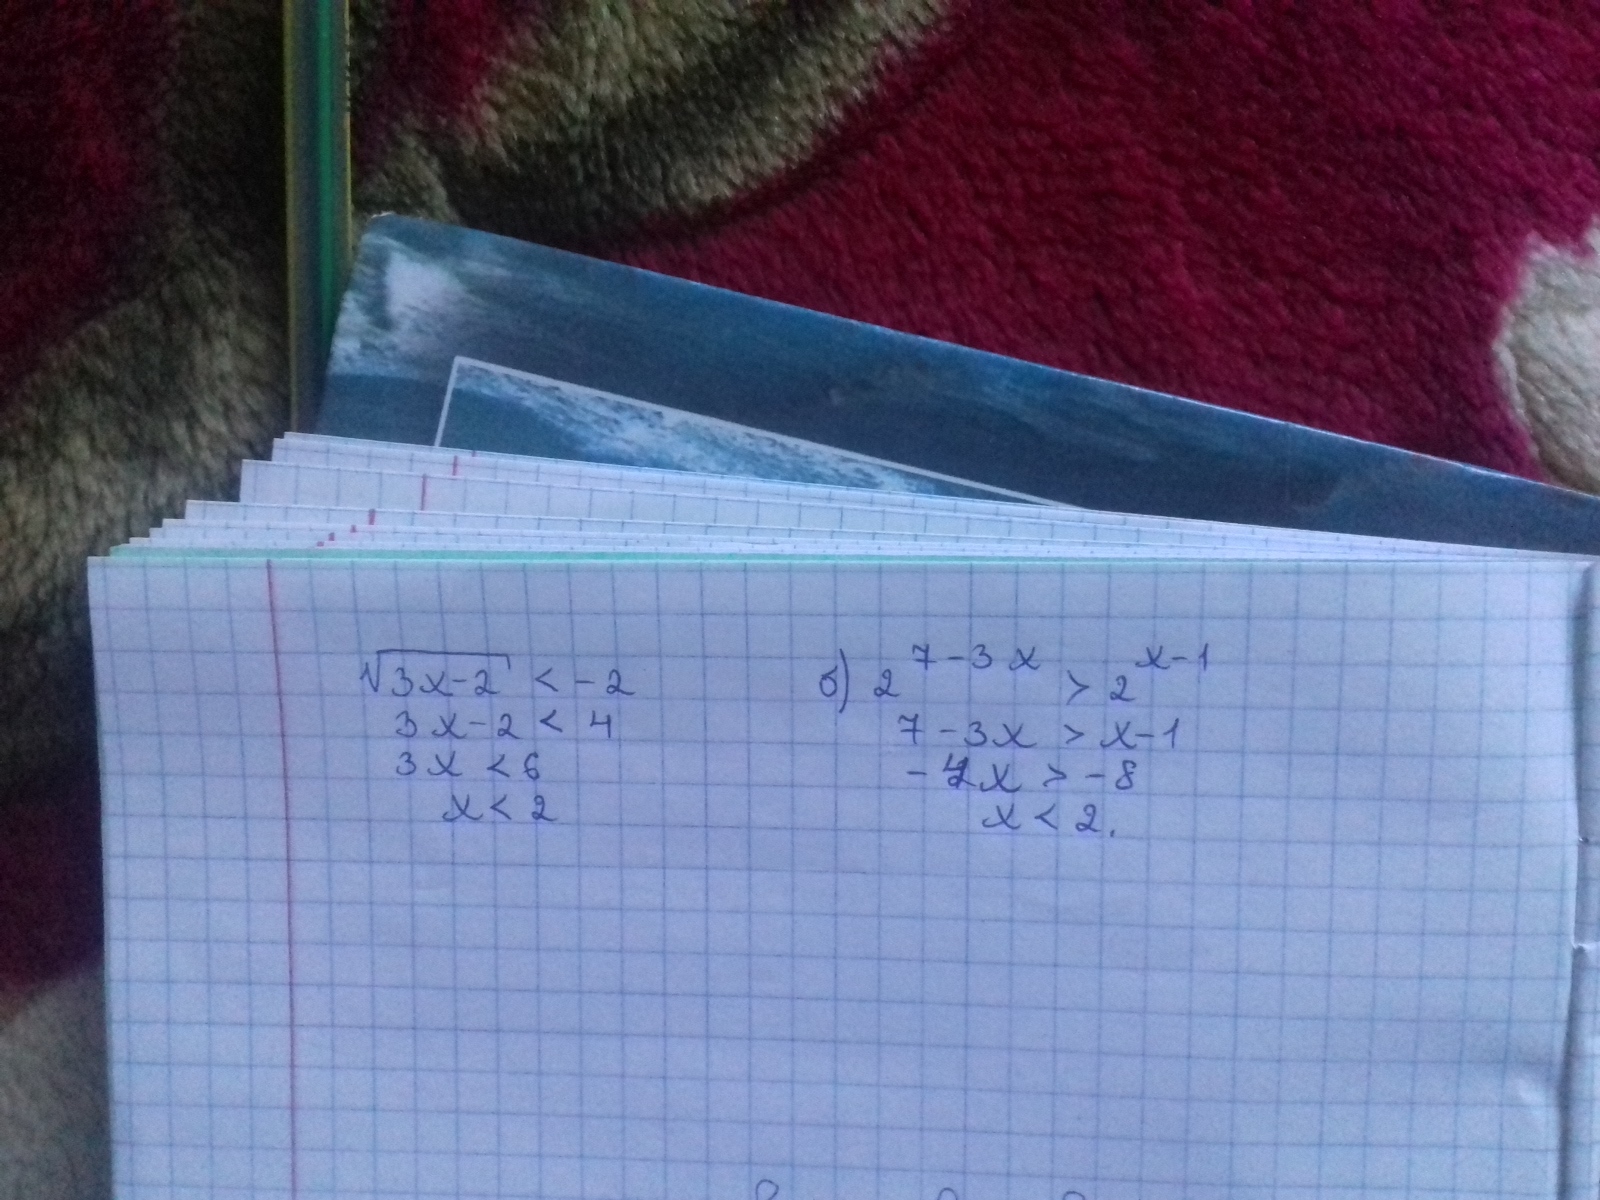 √3x-2 < -2
3x-2 < 4
3x < 6
x < 2
б) 2^(7-3x) > 2^(x-1)
7-3x > x-1
-4x > -8
x < 2.